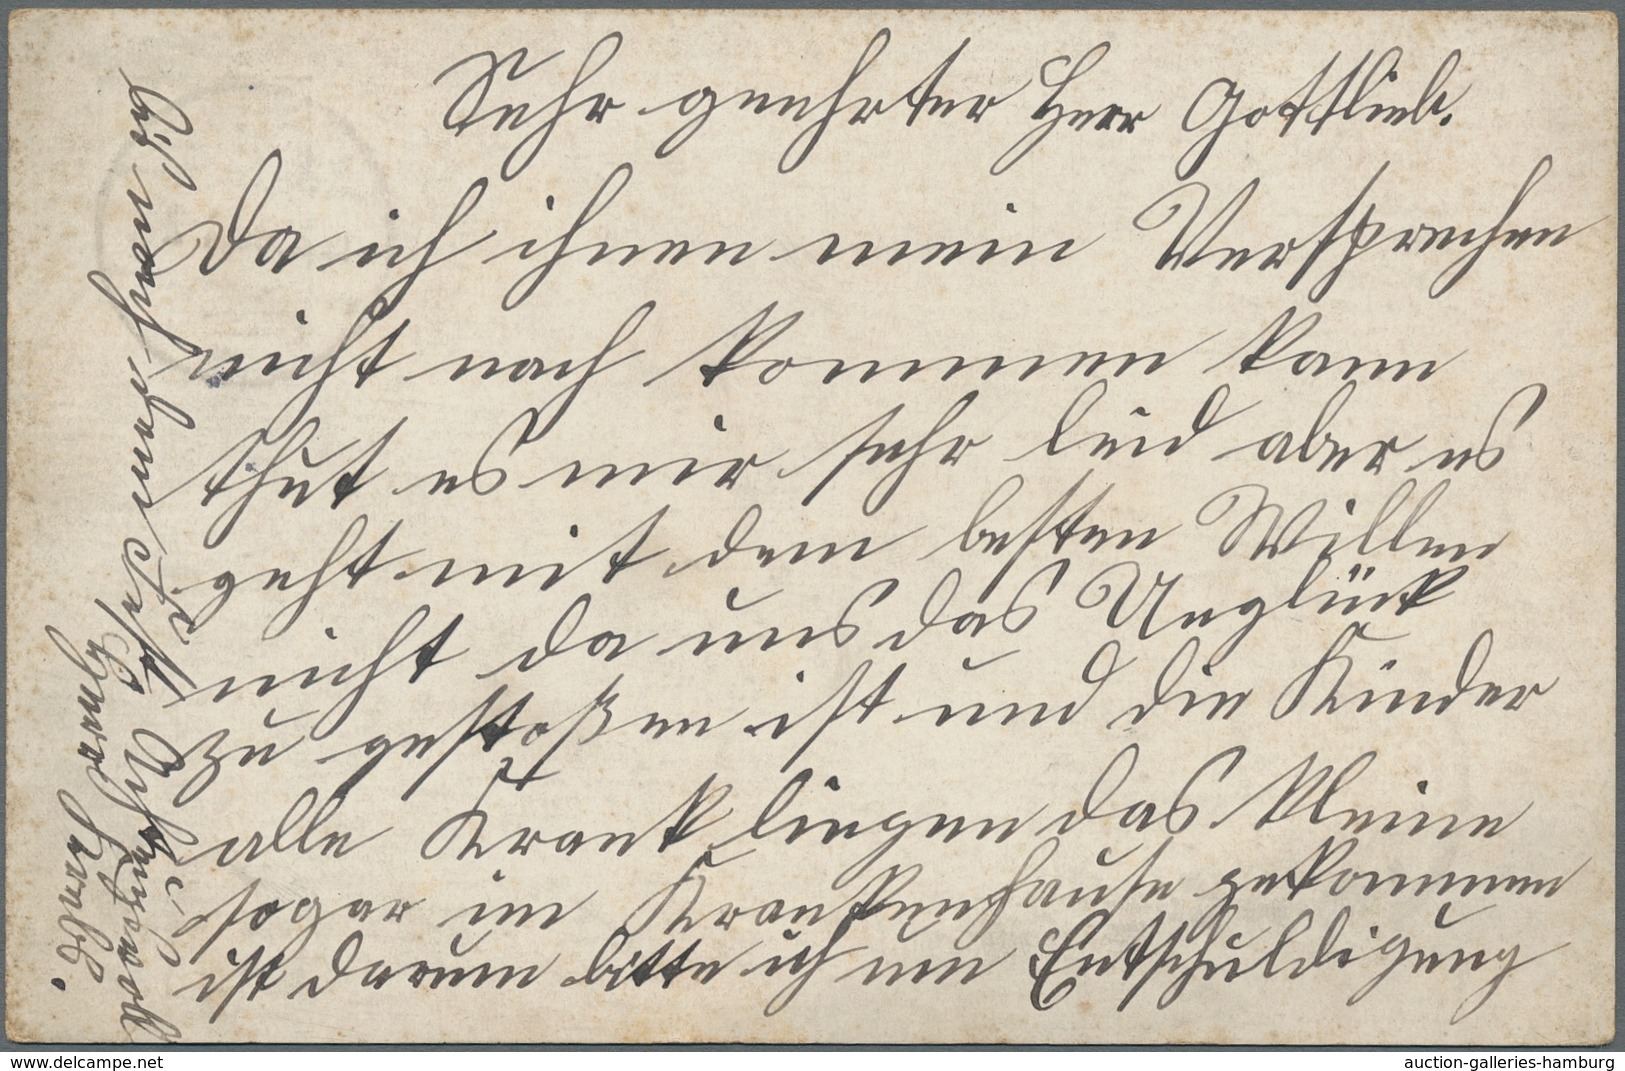 Sehr geehrter Herr Gottlieb.
Da ich ihnen mein Versprechen
nicht nach kommen kann
thut es mir sehr leid aber es
geht mit dem besten Willen
nicht da uns das Unglück
zu gestoßen ist und die Kinder
alle Krank liegen das kleine
sogar im Krankenhause gekommen
ist darum bitte ich um Entschuldigung
www.delcampe.net
auction-galleries-hamburg